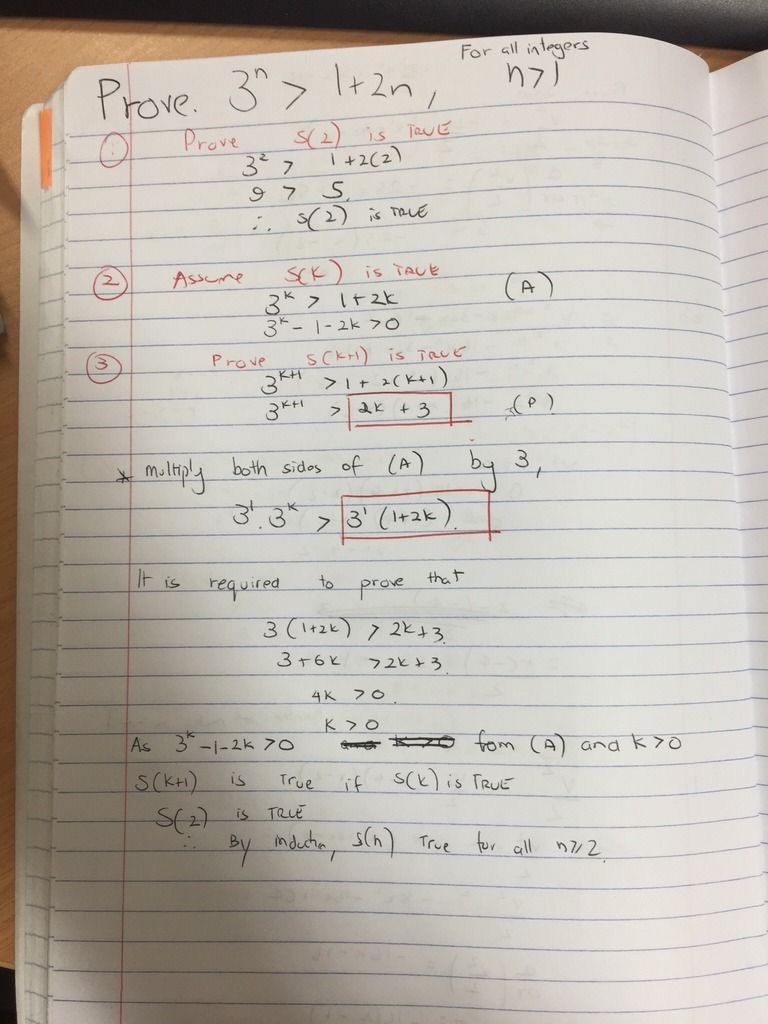 For all integers
Prove. 3ⁿ > 1+2n, n>1
① Prove S(2) is TRUE
3² > 1+2(2)
9 > 5.
∴ S(2) is TRUE
② Assume S(K) is TRUE
3ᵏ > 1+2k (A)
3ᵏ - 1 - 2k > 0
③ Prove S(k+1) is TRUE
3ᵏ⁺¹ > 1 + 2(k+1)
3ᵏ⁺¹ > 2k + 3 (P)
* multiply both sides of (A) by 3,
3¹. 3ᵏ > 3¹ (1+2k).
It is required to prove that
3 (1+2k) > 2k+3.
3+6k > 2k+3.
4k > 0.
k > 0
As 3ᵏ-1-2k > 0 fom (A) and k>0
S(k+1) is True if S(k) is TRUE
S(2) is TRUE
∴ By inductn, S(n) True for all n≥2.